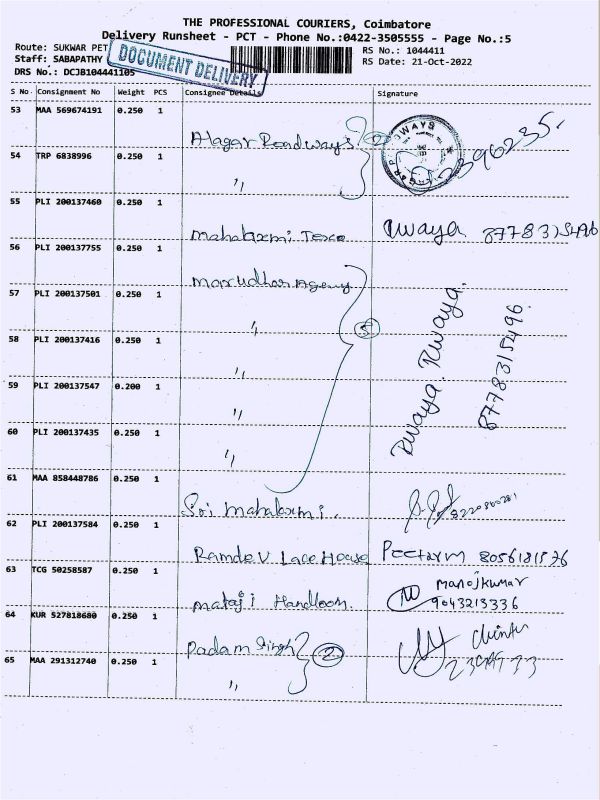 THE PROFESSIONAL COURIERS, Coimbatore
Delivery Runsheet - PCT - Phone No.:0422-3505555 - Page No.:5
Route: SUKWAR PET
RS No.: 1044411
Staff: SABAPATHY
RS Date: 21-Oct-2022
DRS No.: DCJB104441105
DOCUMENT DELIVERY
S No Consignment No Weight PCS Consignee Details Signature
53 MAA 569674191 0.250 1
Alagar Roadways 2
54 TRP 6838996 0.250 1
"
55 PLI 200137460 0.250 1
Mahalaxmi Texo Rwaya 8778315496
56 PLI 200137755 0.250 1
Marudhar Agency
57 PLI 200137501 0.250 1
" 5
58 PLI 200137416 0.250 1
"
59 PLI 200137547 0.200 1
"
60 PLI 200137435 0.250 1
"
Rwaya. Rwaya.
8778315496.
61 MAA 858448786 0.250 1
Sri Mahalaxmi.
62 PLI 200137584 0.250 1
Ramdev Lace House 8056181576
63 TCG 50258587 0.250 1
Mataji Handloom. Manojkumar
9043213336
64 KUR 527818680 0.250 1
Padam Singh 2
65 MAA 291312740 0.250 1
"